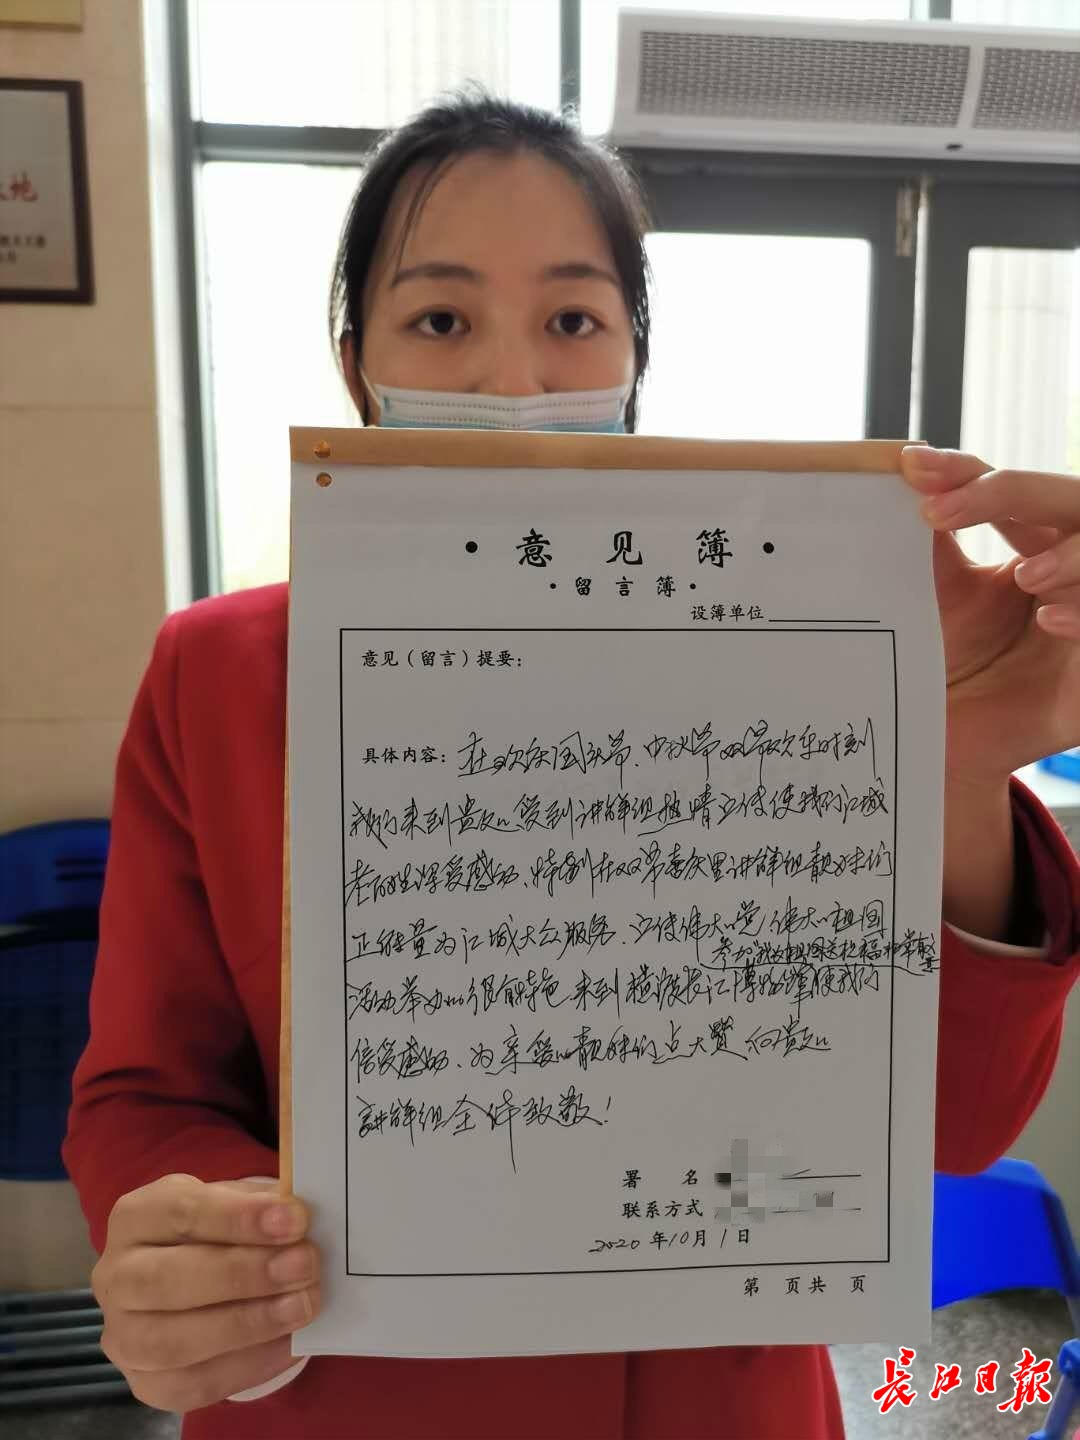 意见簿
留言簿
设簿单位
意见（留言）提要：
具体内容：在欢庆国庆节、中秋节双节欢乐时刻
我们来到贵处受到讲解组热情
使我们江城
老
深受感动、特别在双节喜庆里讲解组靓妹们
正能量为江城大众服务、
伟大的党伟大的祖国
参加"我为祖国送祝福
活动举办的很有特色、来到
长江博物馆
使我们
倍受感动、为亲爱的靓妹们点大赞 向贵处
讲解组全体致敬！
署 名
联系方式
2020 年10月1日
第 页共 页
长江日报